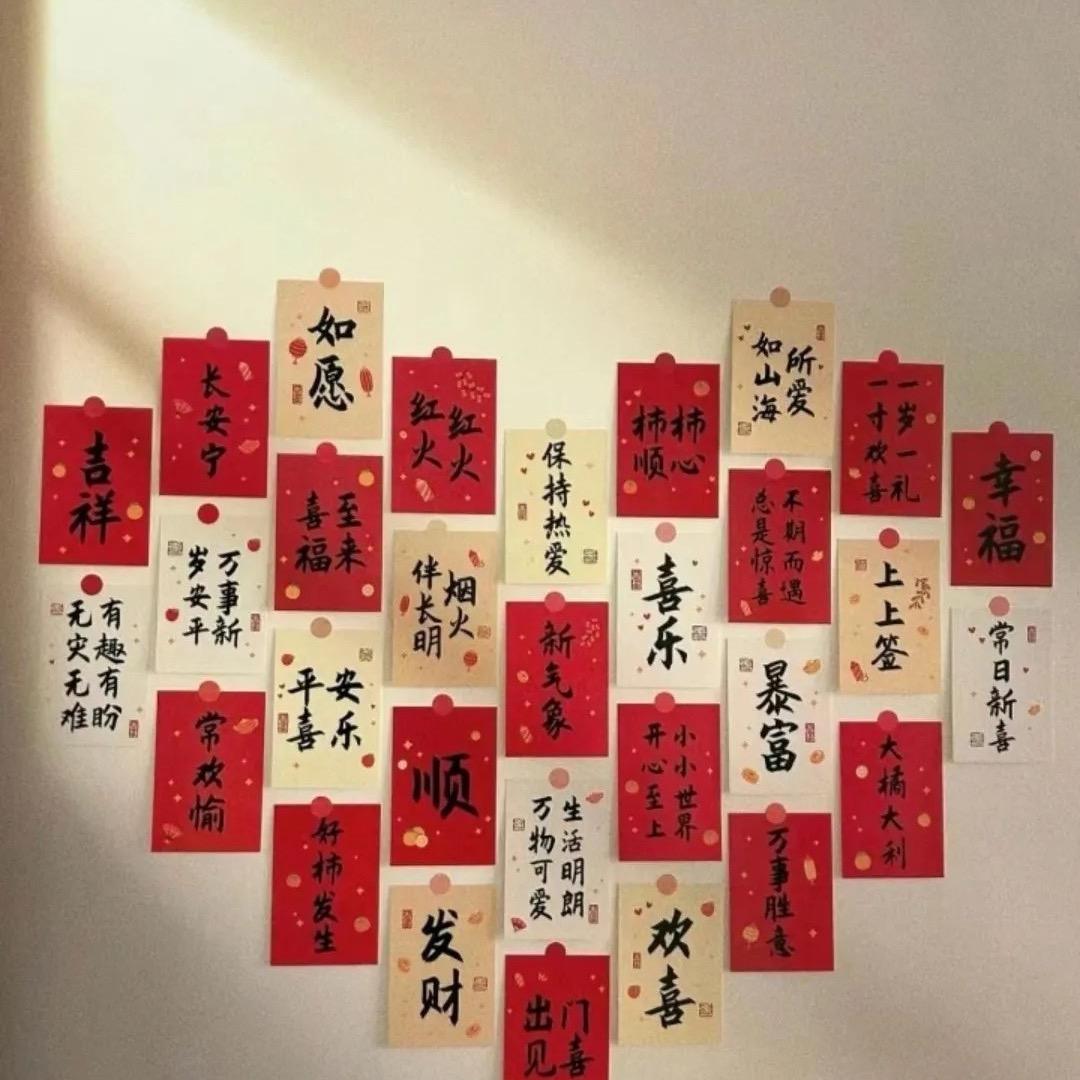 吉祥
有趣有盼
无灾无难
长安宁
万事新
岁安平
常欢愉
如愿
喜至
福来
平安
喜乐
好柿发生
红火
红火
烟火
伴长明
顺
发财
保持热爱
新气象
生活明朗
万物可爱
出门
见喜
柿柿
顺心
喜乐
小小世界
开心至上
欢喜
所爱
如山海
不期而遇
总是惊喜
暴富
万事胜意
一岁一礼
一寸欢喜
上上签
大橘大利
幸福
常日新喜